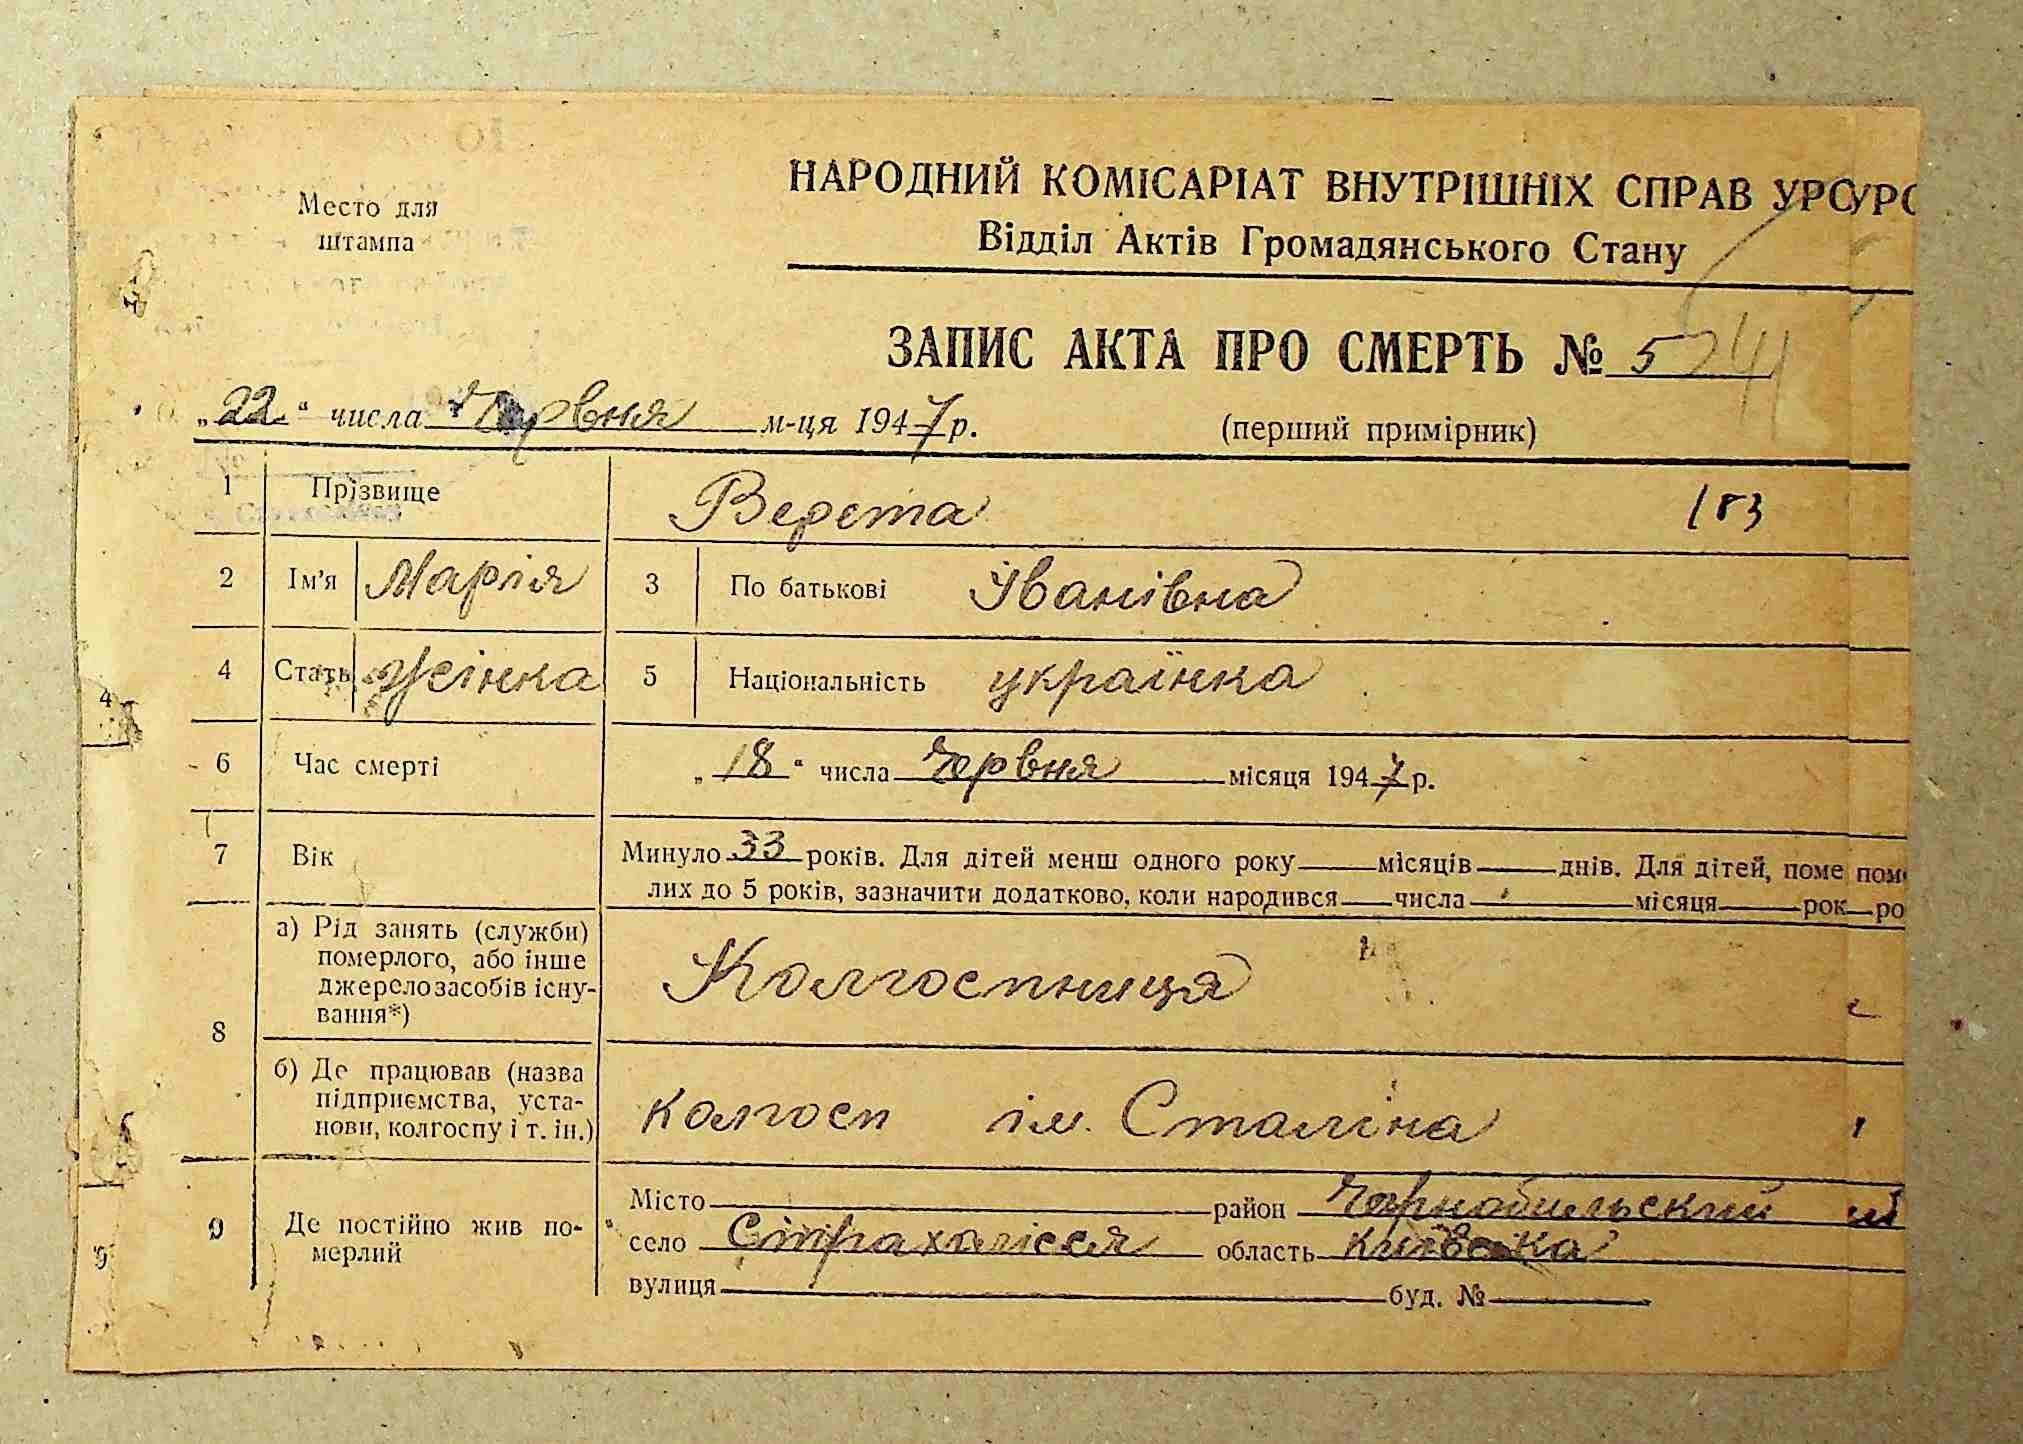 Место для
штампа
НАРОДНИЙ КОМІСАРІАТ ВНУТРІШНІХ СПРАВ УРСР
Відділ Актів Громадянського Стану
ЗАПИС АКТА ПРО СМЕРТЬ № 5
„22“ числа Червня м-ця 1947 р.
(перший примірник)
1 Прізвище Верета 183
2 Ім'я Марія 3 По батькові Іванівна
4 Стать жінка 5 Національність українка
6 Час смерті „18“ числа Червня місяця 1947 р.
7 Вік Минуло 33 років. Для дітей менш одного року місяців днів. Для дітей, поме
лих до 5 років, зазначити додатково, коли народився числа місяця рок
8 а) Рід занять (служби)
померлого, або інше
джерело засобів існу-
вання*)
Колгоспниця
б) Де працював (назва
підприємства, уста-
нови, колгоспу і т. ін.)
колгосп ім. Сталіна
9 Де постійно жив по-
мерлий
Місто район Чорнобильський
село Страхолісся область Київська
вулиця буд. №